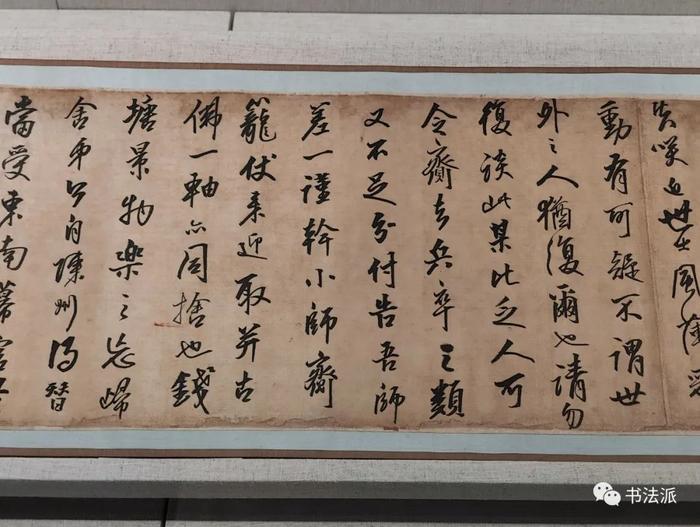 失咲近世士風薄惡
動有可疑不謂世
外之人猶復爾也請勿
復談此某比乏人可
令齎去兵卒之類
又不足分付告吾師
差一謹幹小師齎
籠仗來迎取并古
佛一軸亦同捨也錢
塘景物樂之忘歸
舍弟今自陳州得替
當受東南幕官
书法派